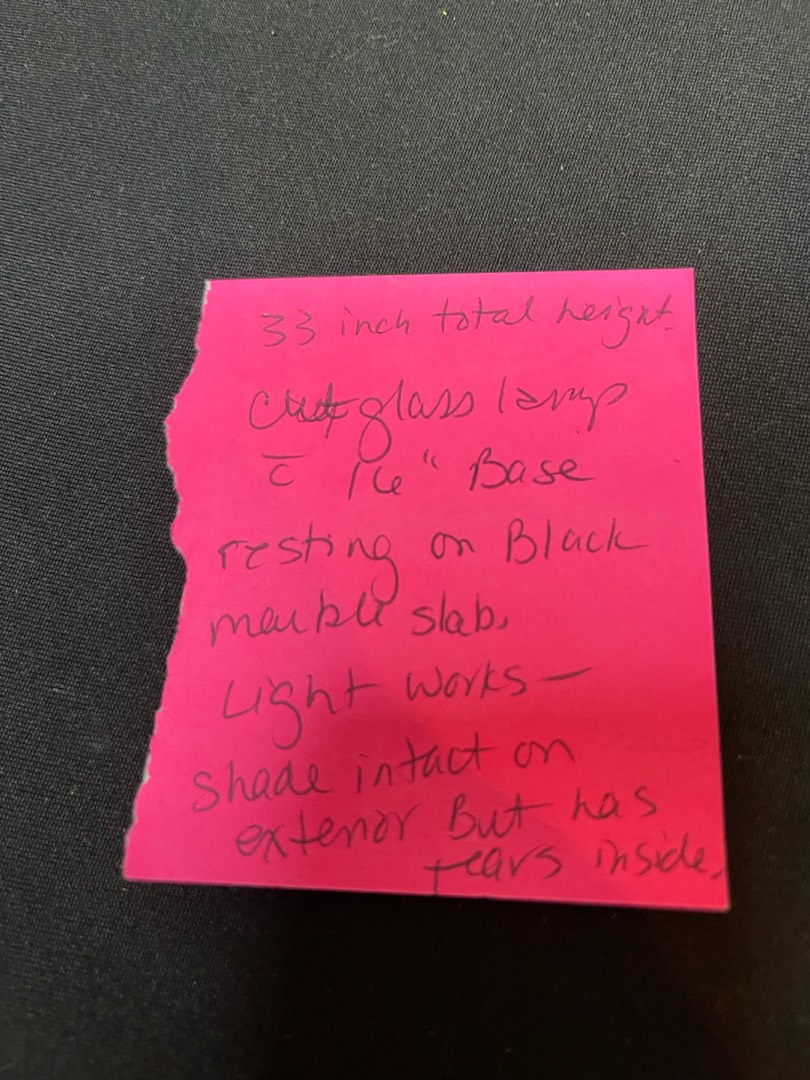 33 inch total height.
Cut glass lamp
c̄ 16" Base
resting on Black
marble slab.
Light works —
shade intact on
exterior But has
tears inside.